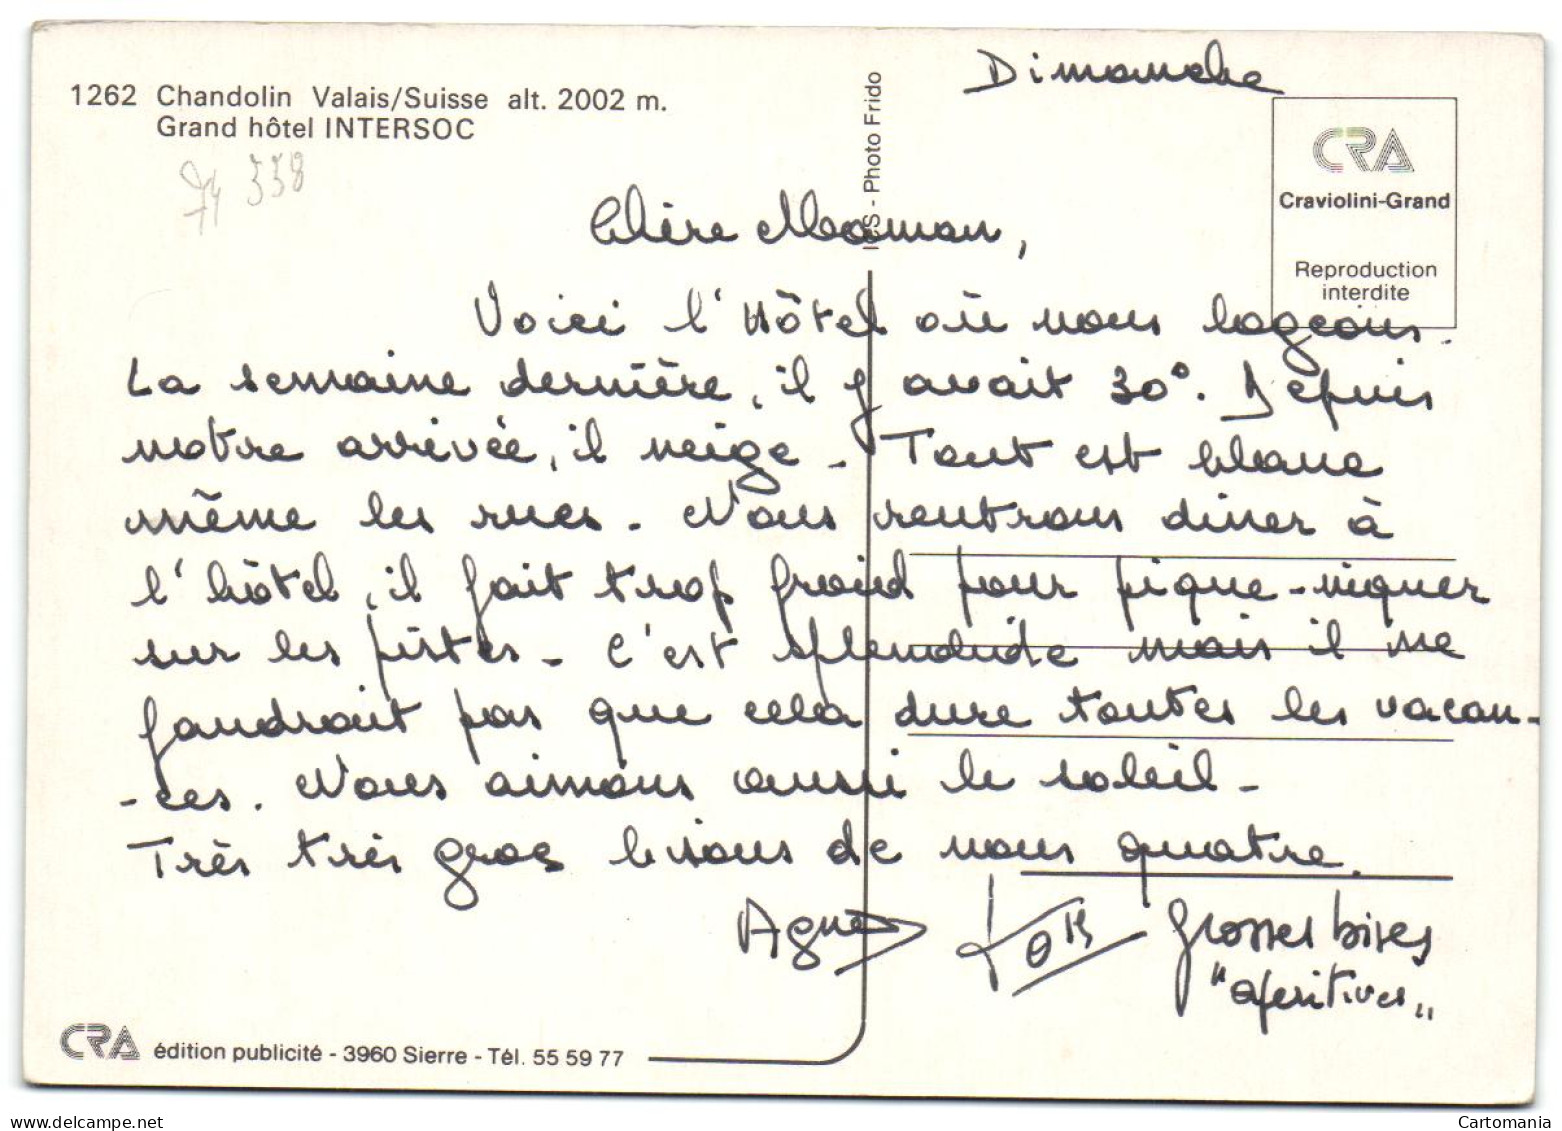 Dimanche
1262 Chandolin Valais/Suisse alt. 2002 m.
Grand hôtel INTERSOC
74 338
ICS - Photo Frido
CRA
Craviolini-Grand
Reproduction
interdite
Chère Maman,
Voici l'Hôtel où nous logeons.
La semaine dernière, il y avait 30°. Depuis
notre arrivée, il neige - Tout est blanc
même les rues - Nous rentrons diner à
l'hôtel, il fait trop froid pour pique-niquer
sur les pistes - C'est splendide mais il ne
faudrait pas que cela dure toutes les vacan-
-ces. Nous aimons aussi le soleil -
Très très gros bisous de nous quatre.
Agnès
grosses bises
"aperitives"
CRA édition publicité - 3960 Sierre - Tél. 55 59 77
www.delcampe.net
Cartomania